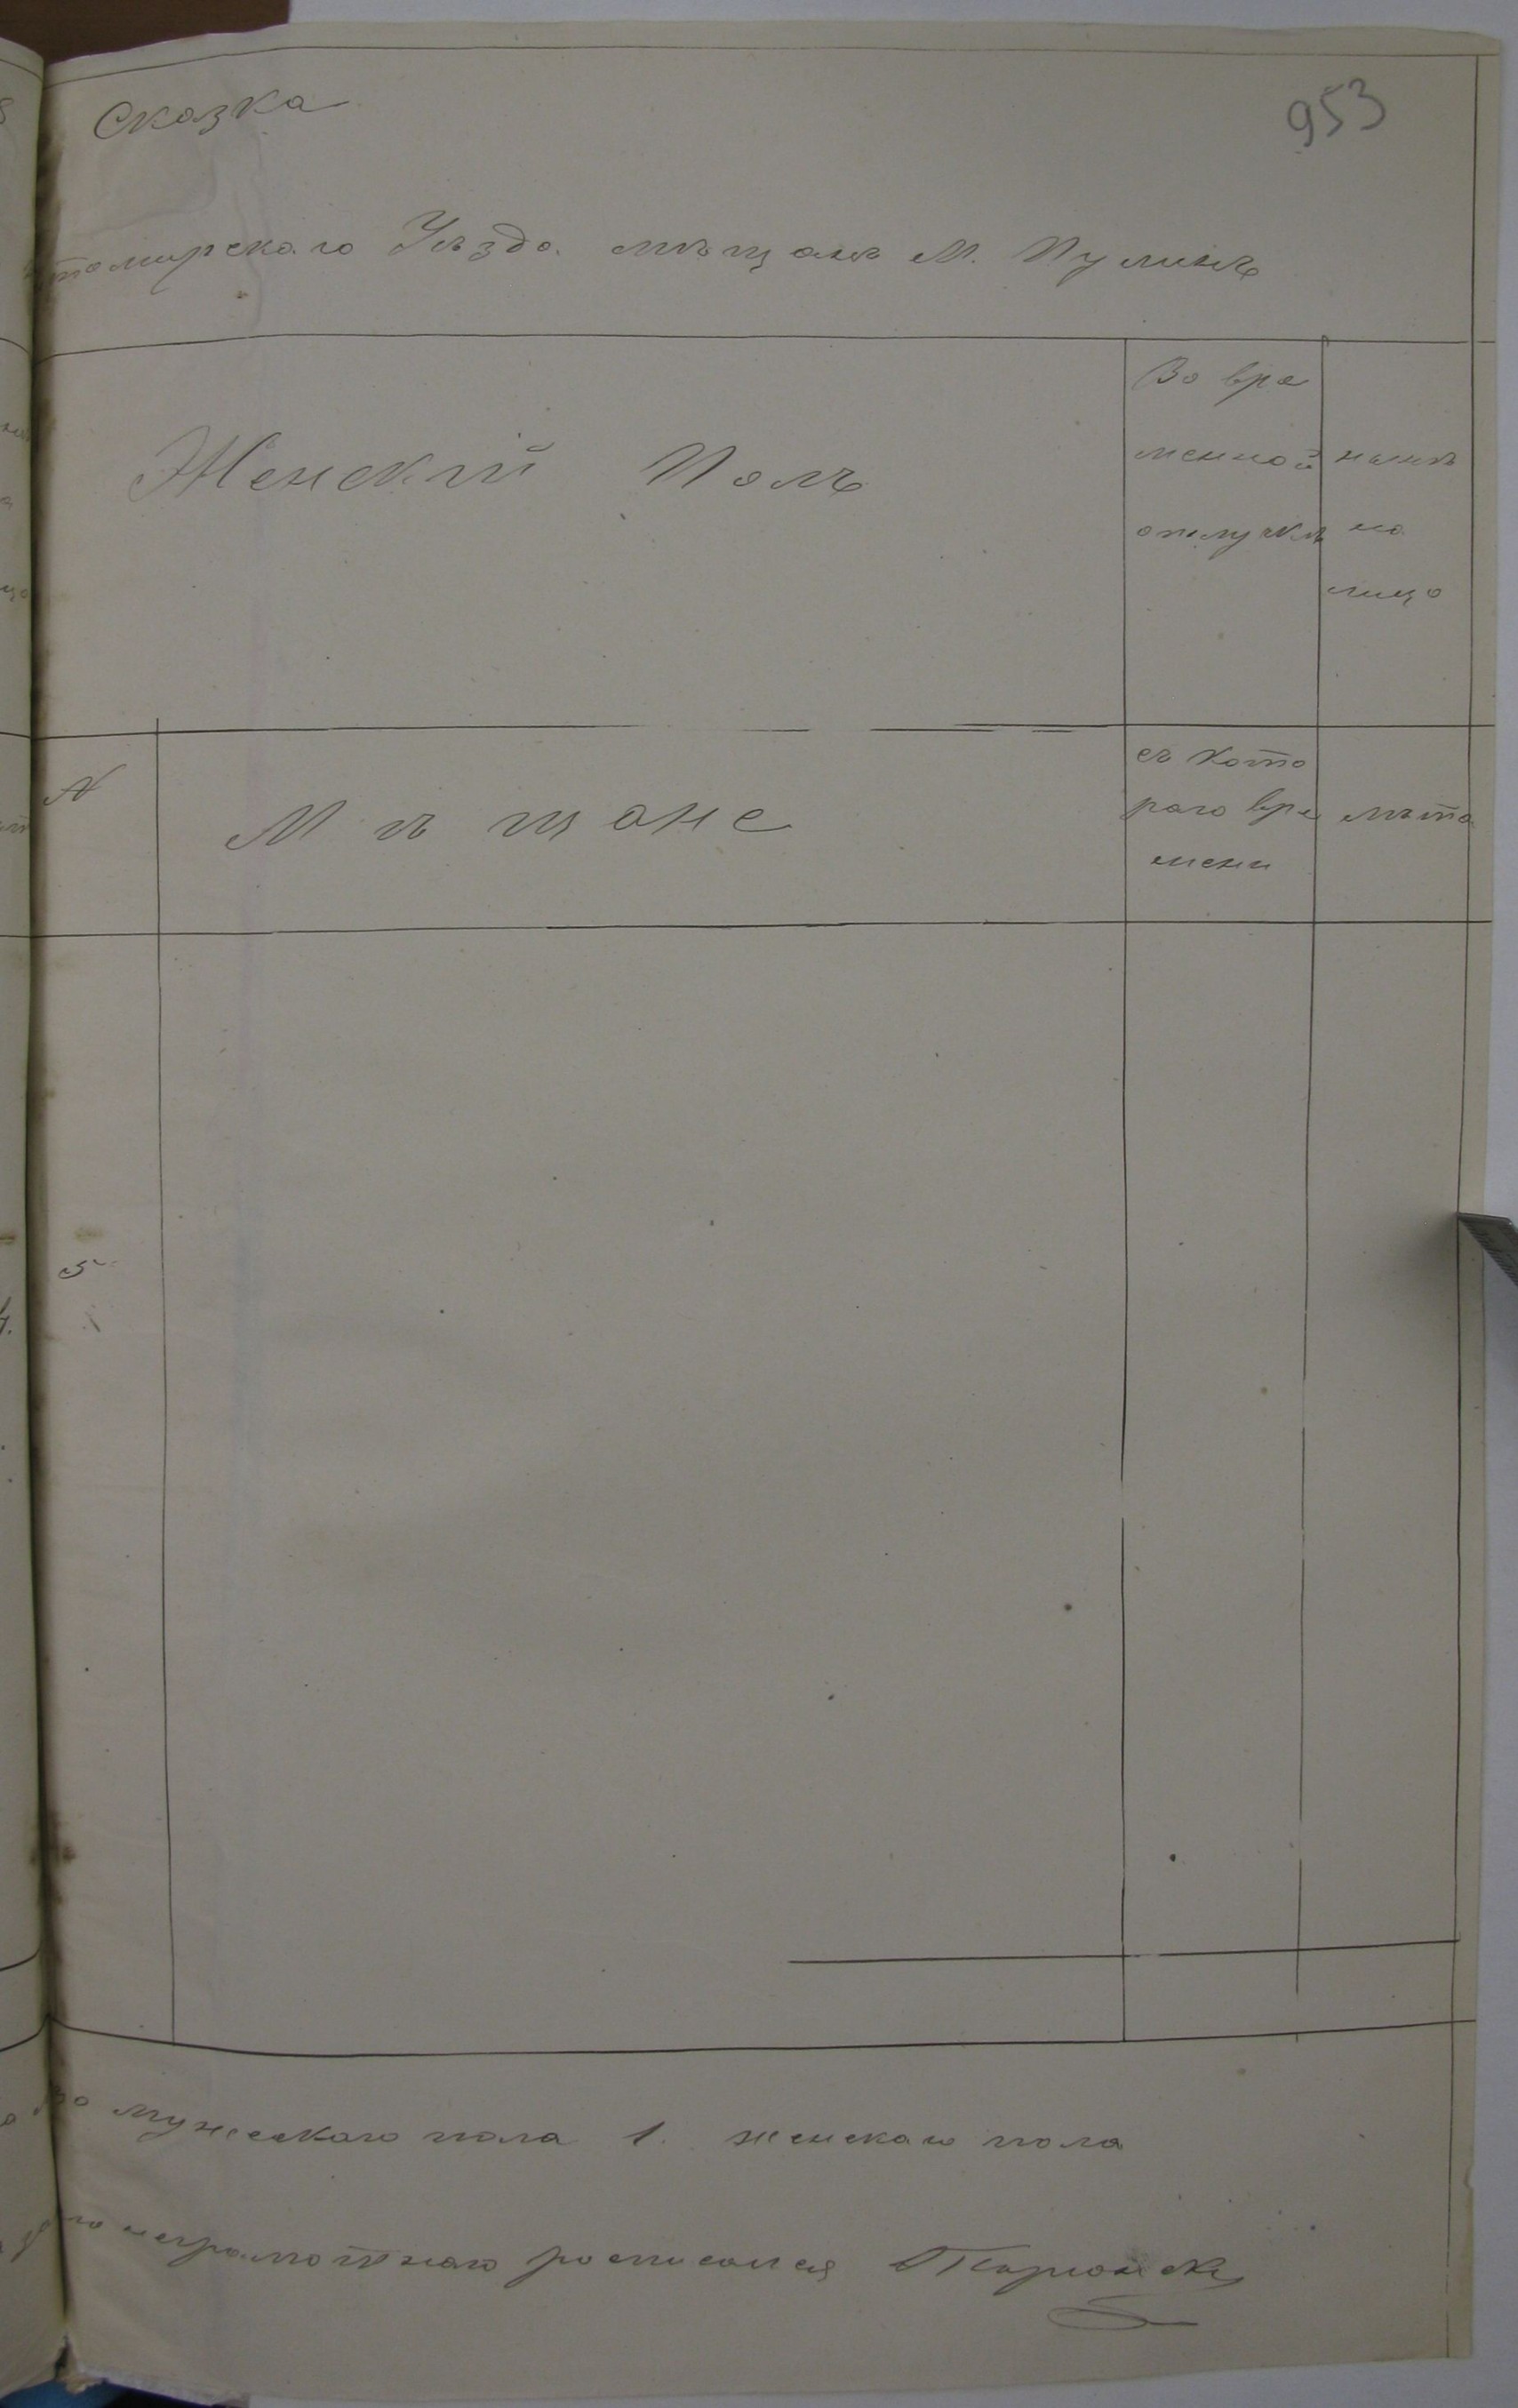 Сказка
953
томирскаго Уѣзда мѣщанъ М. Пулинъ
Женский Полъ
Во вре
менной
отлучкѣ
нынѣ
на
лицо
N
Мѣщане
съ кото
раго вре
мени
лѣта
5
мужескаго пола 1. женскаго пола
неграмотнаго росписался